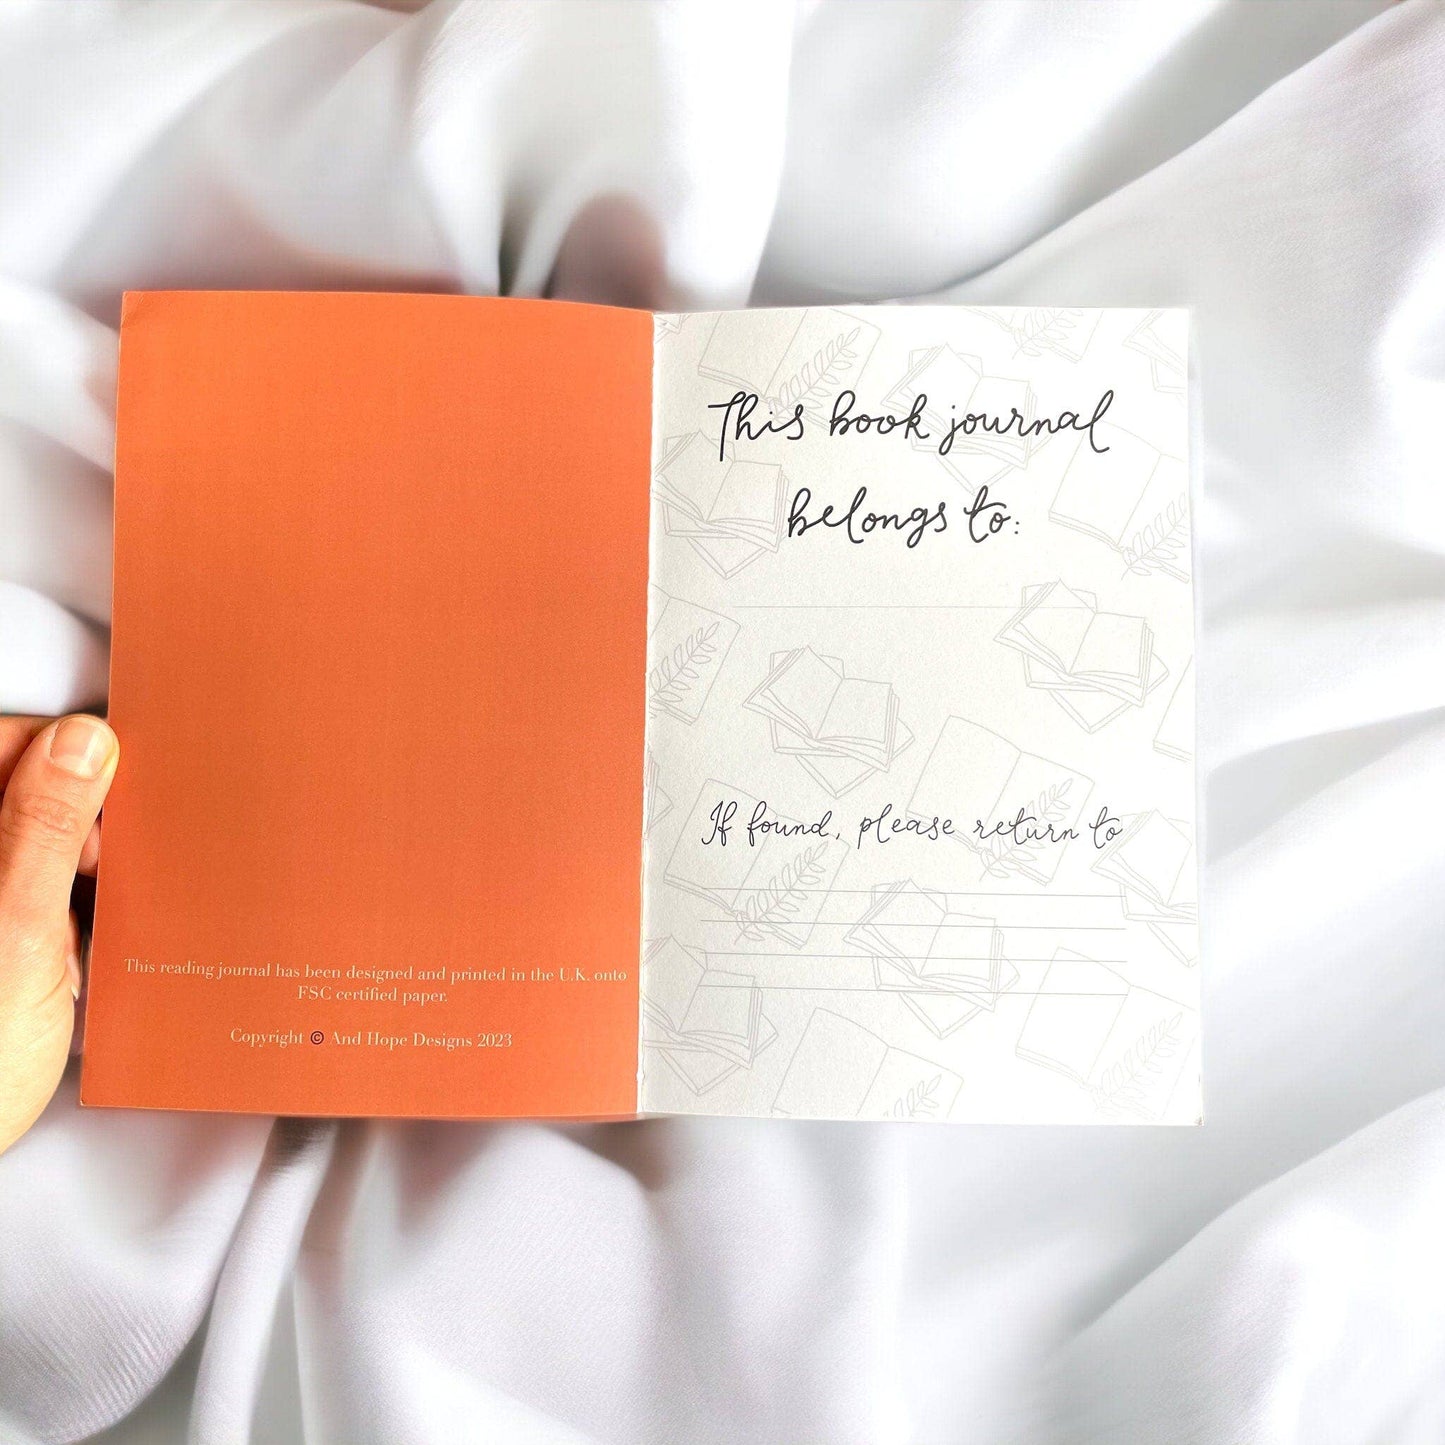 This reading journal has been designed and printed in the U.K. onto
FSC certified paper.
Copyright © And Hope Designs 2023
This book journal
belongs to:
If found, please return to